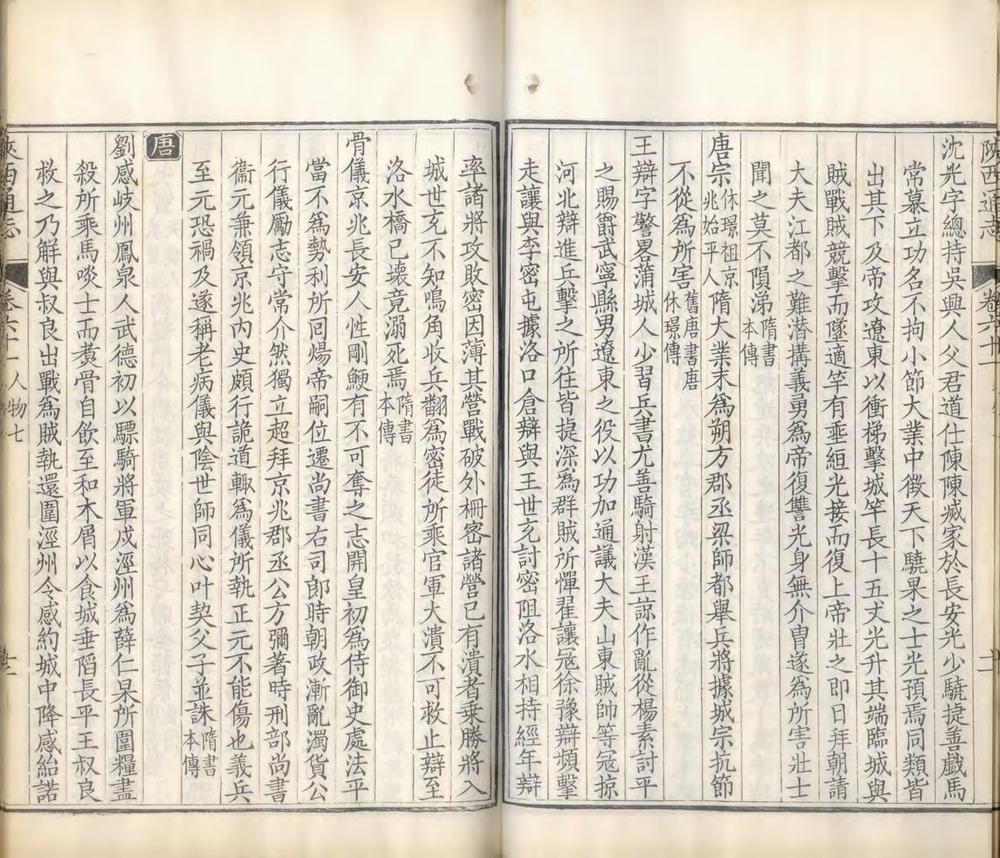 陝西通志
卷六十一
沈光字總持吳興人父君道仕陳陳滅家於長安光少驍捷善戲馬
常慕立功名不拘小節大業中徵天下驍果之士光預焉同類皆
出其下及帝攻遼東以衝梯擊城竿長十五丈光升其端臨城與
賊戰賊競擊而墜適竿有垂絙光接而復上帝壯之即日拜朝請
大夫江都之難潛搆義勇為帝復讐光身無介胄遂為所害壯士
聞之莫不隕涕隋書本傳
唐宗休璟祖京兆始平人隋大業末為朔方郡丞梁師都舉兵將據城宗抗節
不從為所害舊唐書唐休璟傳
王辯字警畧蒲城人少習兵書尤善騎射漢王諒作亂從楊素討平
之賜爵武寧縣男遼東之役以功加通議大夫山東賊帥等冦掠
河北辯進兵擊之所往皆捷深為群賊所憚翟讓冦徐豫辯頻擊
走讓與李密屯據洛口倉辯與王世充討密阻洛水相持經年辯
率諸將攻敗密因薄其營戰破外柵密諸營已有潰者乗勝將入
城世充不知鳴角收兵翻為密徒所乘官軍大潰不可救止辯至
洛水橋已壊竟溺死焉隋書本傳
骨儀京兆長安人性剛鯁有不可奪之志開皇初為侍御史處法平
當不為勢利所回煬帝嗣位遷尚書右司郎時朝政漸亂濁貨公
行儀厲志守常介然獨立超拜京兆郡丞公方彌著時刑部尚書
衞元兼領京兆內史頗行詭道輙為儀所執正元不能傷也義兵
至元恐禍及遂稱老病儀與陰世師同心叶契父子並誅隋書本傳
唐
劉感岐州鳳泉人武德初以驃騎將軍戍涇州為薛仁杲所圍糧盡
殺所乘馬啖士而煑骨自飲至和木屑以食城垂陷長平王叔良
救之乃解與叔良出戰為賊執還圍涇州令感約城中降感紿諾
陝西通志
卷六十一
人物七